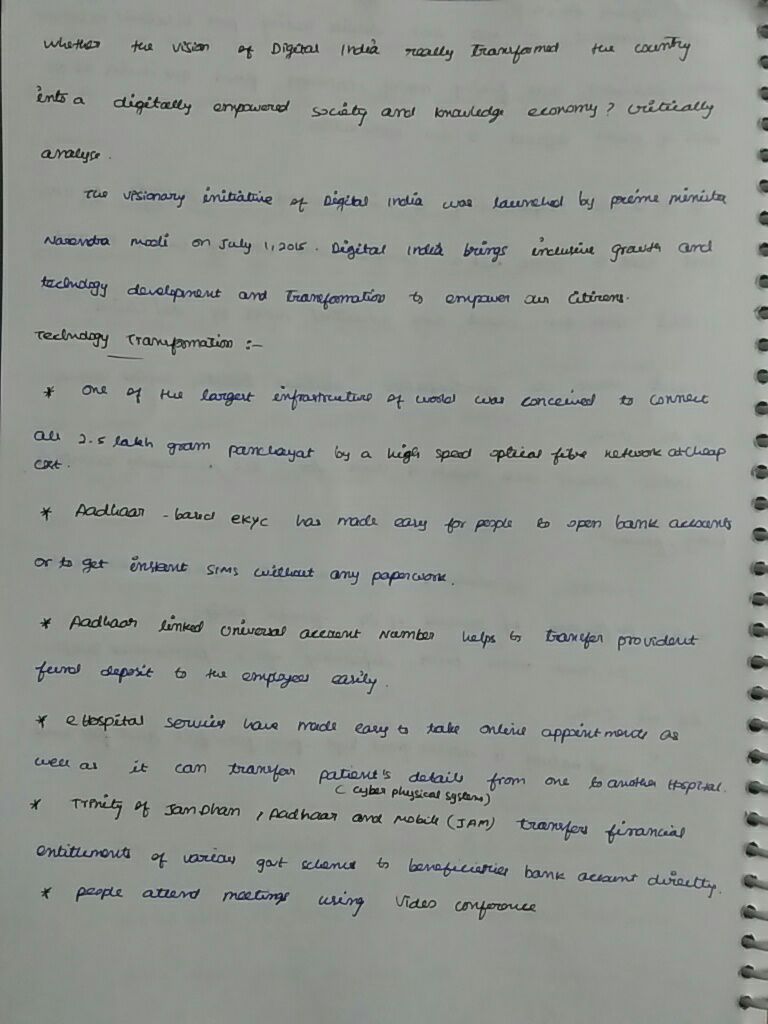 Whether the vision of Digital India really Transformed the country
into a digitally empowered society and knowledge economy? Critically
analyse.
The visionary initiative of Digital India was launched by prime minister
Narendra modi on July 1, 2015. Digital India brings inclusive growth and
technology development and Transformation to empower our citizens.
Technology Transformation :-
* One of the largest infrastructure of world was conceived to connect
all 2.5 lakh gram panchayat by a high speed optical fibre network at cheap
cost.
* Aadhaar - based eKYC has made easy for people to open bank accounts
or to get instant SIMS without any paperwork.
* Aadhaar linked Universal account Number helps to transfer provident
fund deposit to the employees easily.
* eHospital services have made easy to take online appointments as
well as it can transfer patient's details from one to another Hospital.
(cyber physical systems)
* Trinity of Jan Dhan, Aadhaar and Mobile (JAM) transfers financial
entitlements of various govt scheme to beneficiaries bank account directly.
* people attend meetings using Video conference